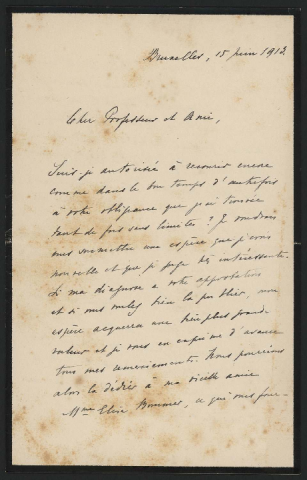 Bruxelles, 15 Juin 1912
Cher Professeur et Ami,
Suis-je autorisée à recourir encore
comme dans le bon temps d'autrefois
à votre obligeance que j'ai trouvée
tant de fois sans limites? Je voudrais
vous soumettre une espèce que je crois
nouvelle et que je juge très intéressante.
Si ma diagnose a votre approbation
et si vous voulez bien la publier, mon
espèce acquerra une bien plus grande
valeur et je vous en exprime d'avance
tous mes remerciements. Nous pourrions
alors la dédier à ma vieille amie
Mme Elisa Bommer, ce qui vous fera